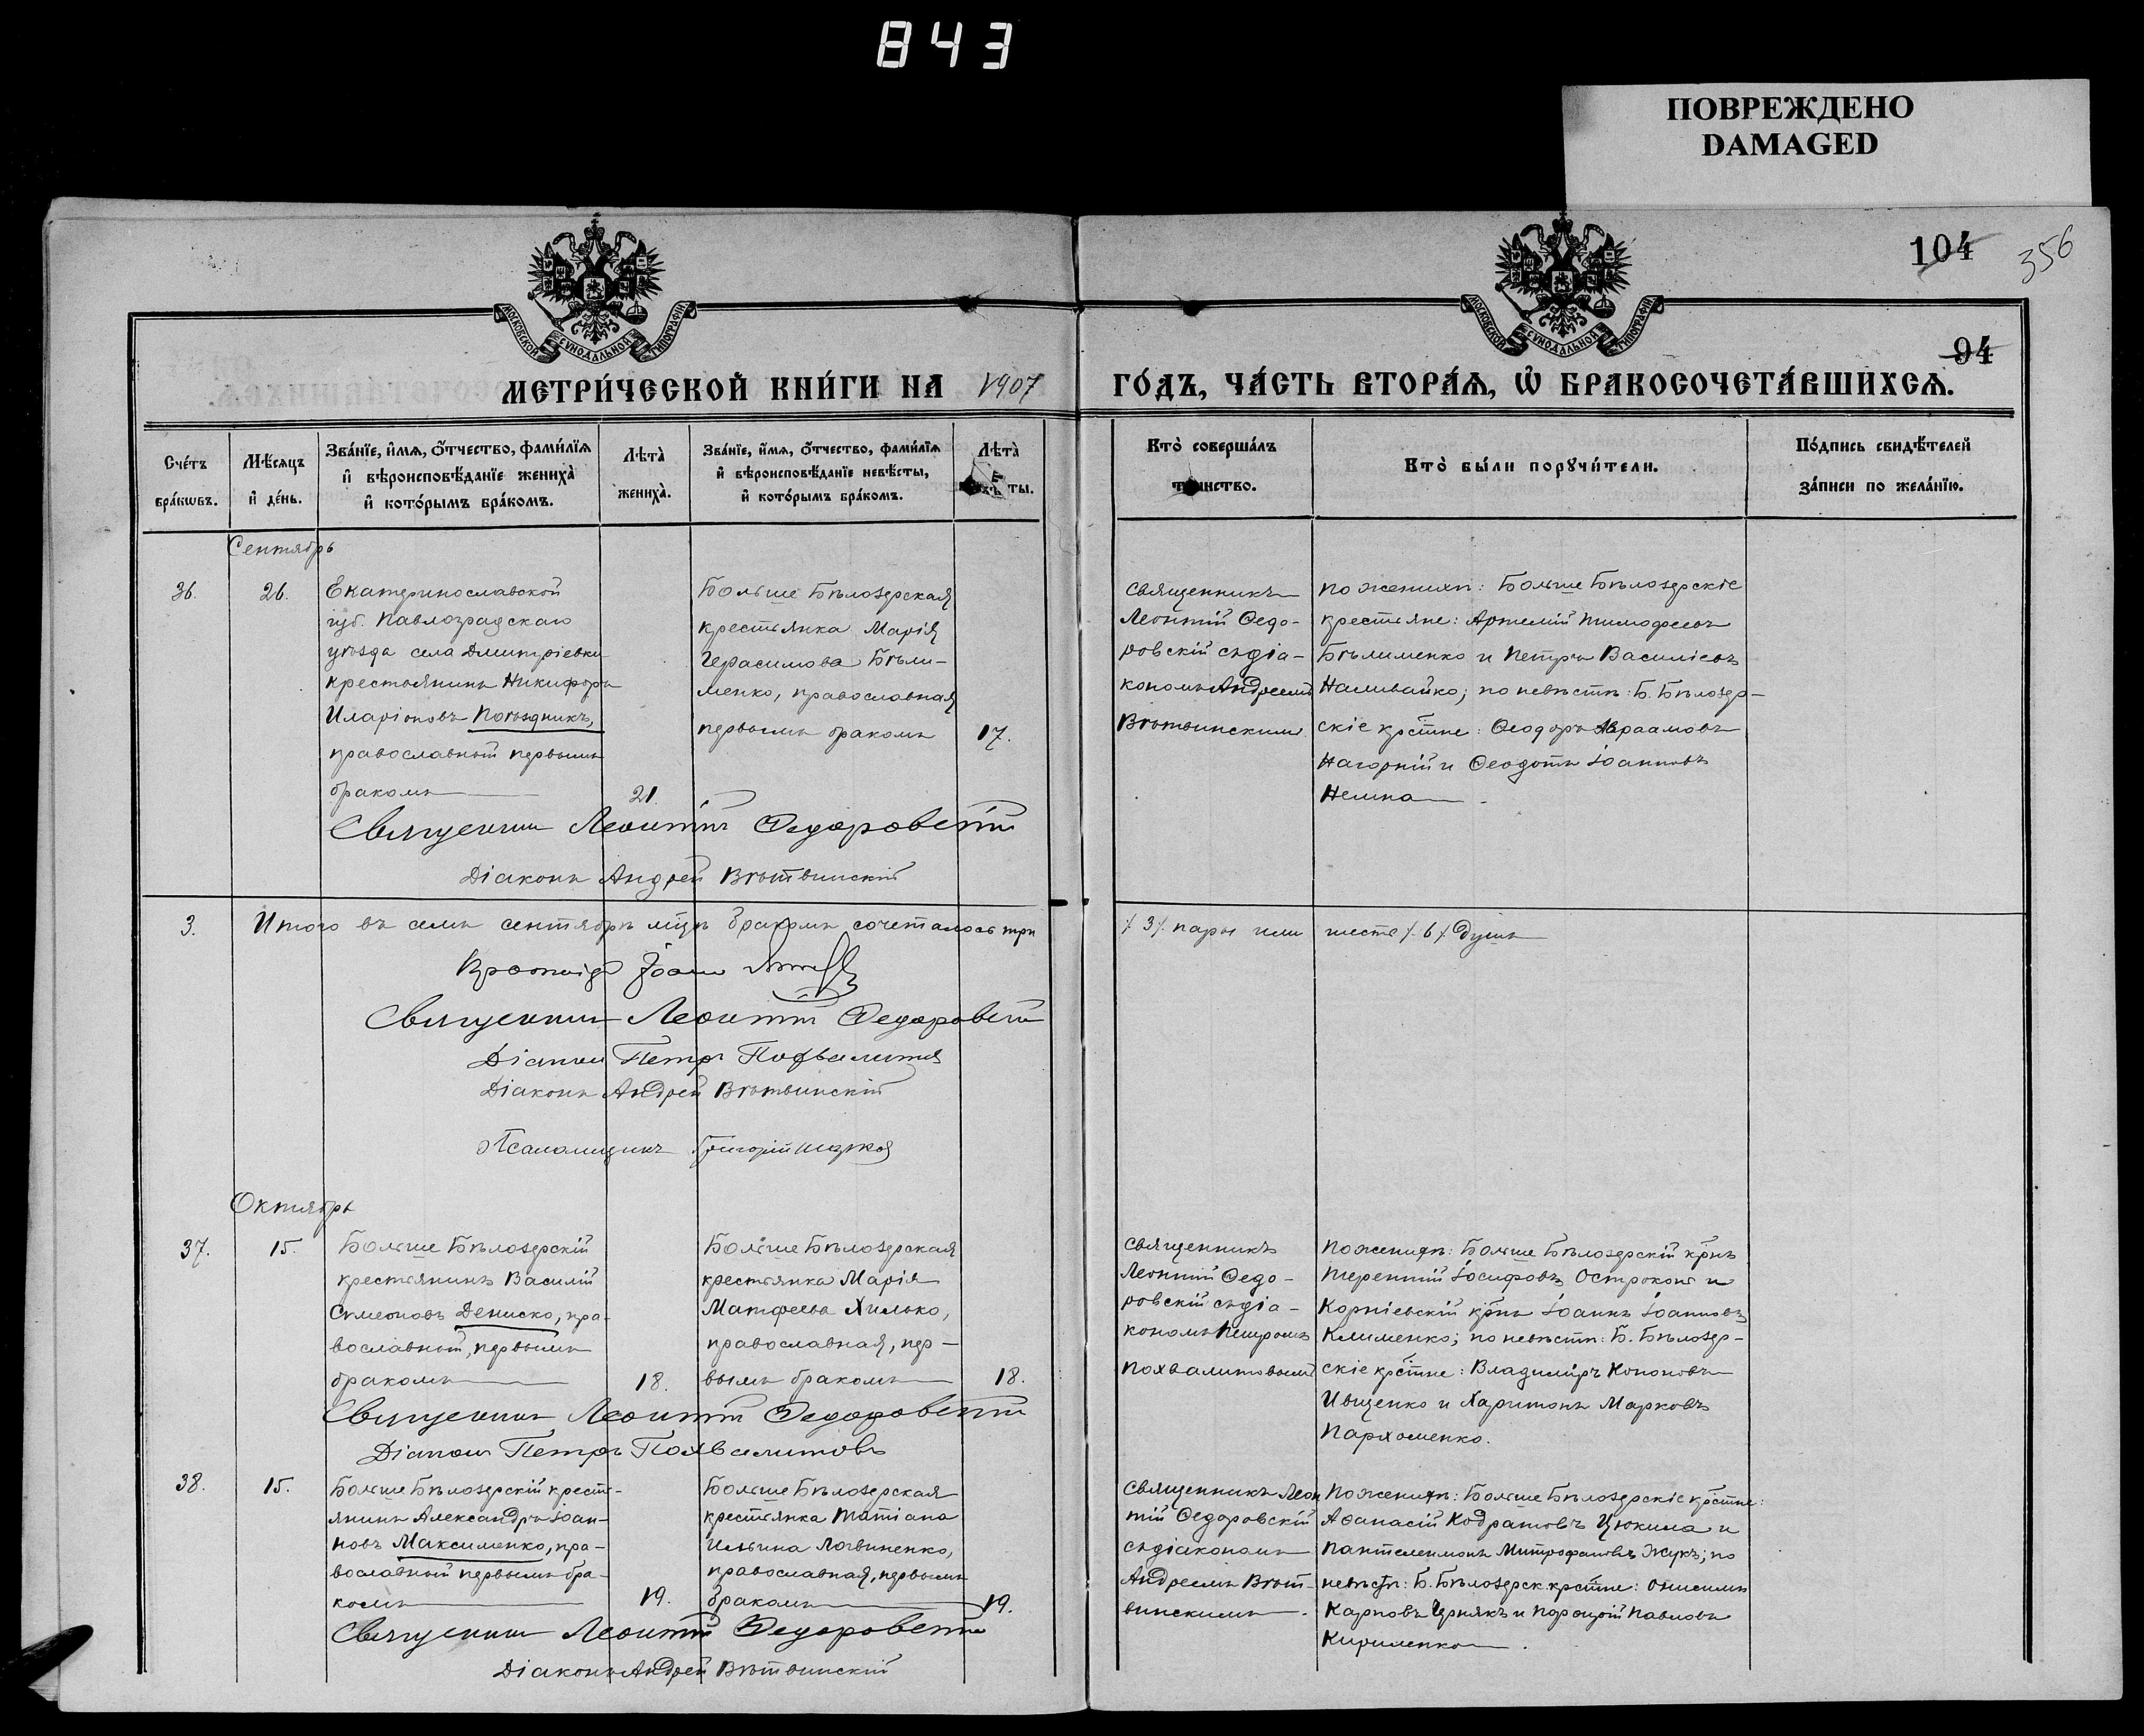 843
ПОВРЕЖДЕНО
DAMAGED
104
356
94
МОСКОВСКОЙ СѴНОДАЛЬНОЙ ТИПОГРАФІИ
МОСКОВСКОЙ СѴНОДАЛЬНОЙ ТИПОГРАФІИ
МЕТРИ́ЧЕСКОЙ КНИ́ГИ НА 1907
ГО́ДЪ, ЧА́СТЬ ВТОРА́Ѧ, Ѡ БРАКОСОЧЕТА́ВШИХСѦ.
Сче́тъ бра́кѡвъ.
Мѣ́сяцъ и де́нь.
Зва́нїе, и́мѧ, ѻ҆́тчество, фами́лїѧ и вѣроисповѣ́данїе жениха̀ и кото́рымъ бра́комъ.
Лѣта̀ жениха̀.
Зва́нїе, и́мѧ, ѻ҆́тчество, фами́лїѧ и вѣроисповѣ́данїе невѣ́сты, и кото́рымъ бра́комъ.
Лѣта̀ ты.
Кто̀ соверша́лъ таинство.
Кто̀ бы́ли порꙋчи́тели.
По́дпись свидѣ́телей за́писи по жела́нїю.
Сентябрь
36.
26.
Екатеринославской
губ. Павлоградскаго
уѣзда села Дмитріевки
крестьянинъ Никифоръ
Иларіоновъ Погѣздникъ,
православный первымъ
бракомъ
21.
Больше Бѣлозерская
крестьянка Марія
Герасимова Бѣли-
менко, православная
первымъ бракомъ
17.
Священникъ
Леонтій Ѳедо-
ровскій съ діа-
кономъ Андреемъ
Вѣтвинскимъ
По женихѣ: Больше Бѣлозерскіе
крестьяне: Артемій Тимофеевъ
Бѣлименко и Петръ Василіевъ
Наливайко; по невѣстѣ: Б. Бѣлозер-
скіе крстне: Ѳеодоръ Авраамовъ
Нагорній и Ѳеодотъ Іоанновъ
Немна
Священникъ Леонтій Ѳедоровскій
Діаконъ Андрей Вѣтвинскій
3.
Итого въ семъ сентябрѣ мцѣ бракомъ сочеталось три
/3/ пары или шесть /6/ душъ
Протоіер Іоан
Священникъ Леонтій Ѳедоровскій
Діаконъ Петръ Похвалитовъ
Діаконъ Андрей Вѣтвинскій
Псаломщикъ Григорій
Октябрь
37.
15.
Больше Бѣлозерскій
крестьянинъ Василій
Симеоновъ Дениско, пра-
вославный, первымъ
бракомъ
18.
Больше Бѣлозерская
крестьянка Марія
Матфеева Хилько,
православная, пер-
вымъ бракомъ
18.
Священникъ
Леонтій Ѳедо-
ровскій съ діа-
кономъ Петромъ
Похвалитовымъ
По женихѣ: Больше Бѣлозерскій крнъ
Терентій Іосифовъ Остроконь и
Корніевскій крнъ Іоаннъ Іоанновъ
Клименко; по невѣстѣ: Б. Бѣлозер-
скіе крстне: Владиміръ Кононовъ
Ивщенко и Харитонъ Марковъ
Пархоменко.
Священникъ Леонтій Ѳедоровскій
Діаконъ Петръ Похвалитовъ
38.
15.
Больше Бѣлозерскій кресть-
янинъ Александръ Іоан-
новъ Максименко, пра-
вославный первымъ бра-
комъ
19.
Больше Бѣлозерская
крестьянка Татіана
Ильина Логвиненко,
православная, первымъ
бракомъ
19.
Священникъ Леон
тій Ѳедоровскій
съ діакономъ
Андреемъ Вѣт-
винскимъ.
По женихѣ: Больше Бѣлозерскіе крстне:
Аѳанасій Кодратовъ Цюкима и
Пантелеимонъ Митрофановъ Жукъ; по
невѣстѣ: Б. Бѣлозерск. крстне: Онисимъ
Карповъ Чернякъ и Порфирій Павловъ
Кириленко.
Священникъ Леонтій Ѳедоровскій
Діаконъ Андрей Вѣтвинскій